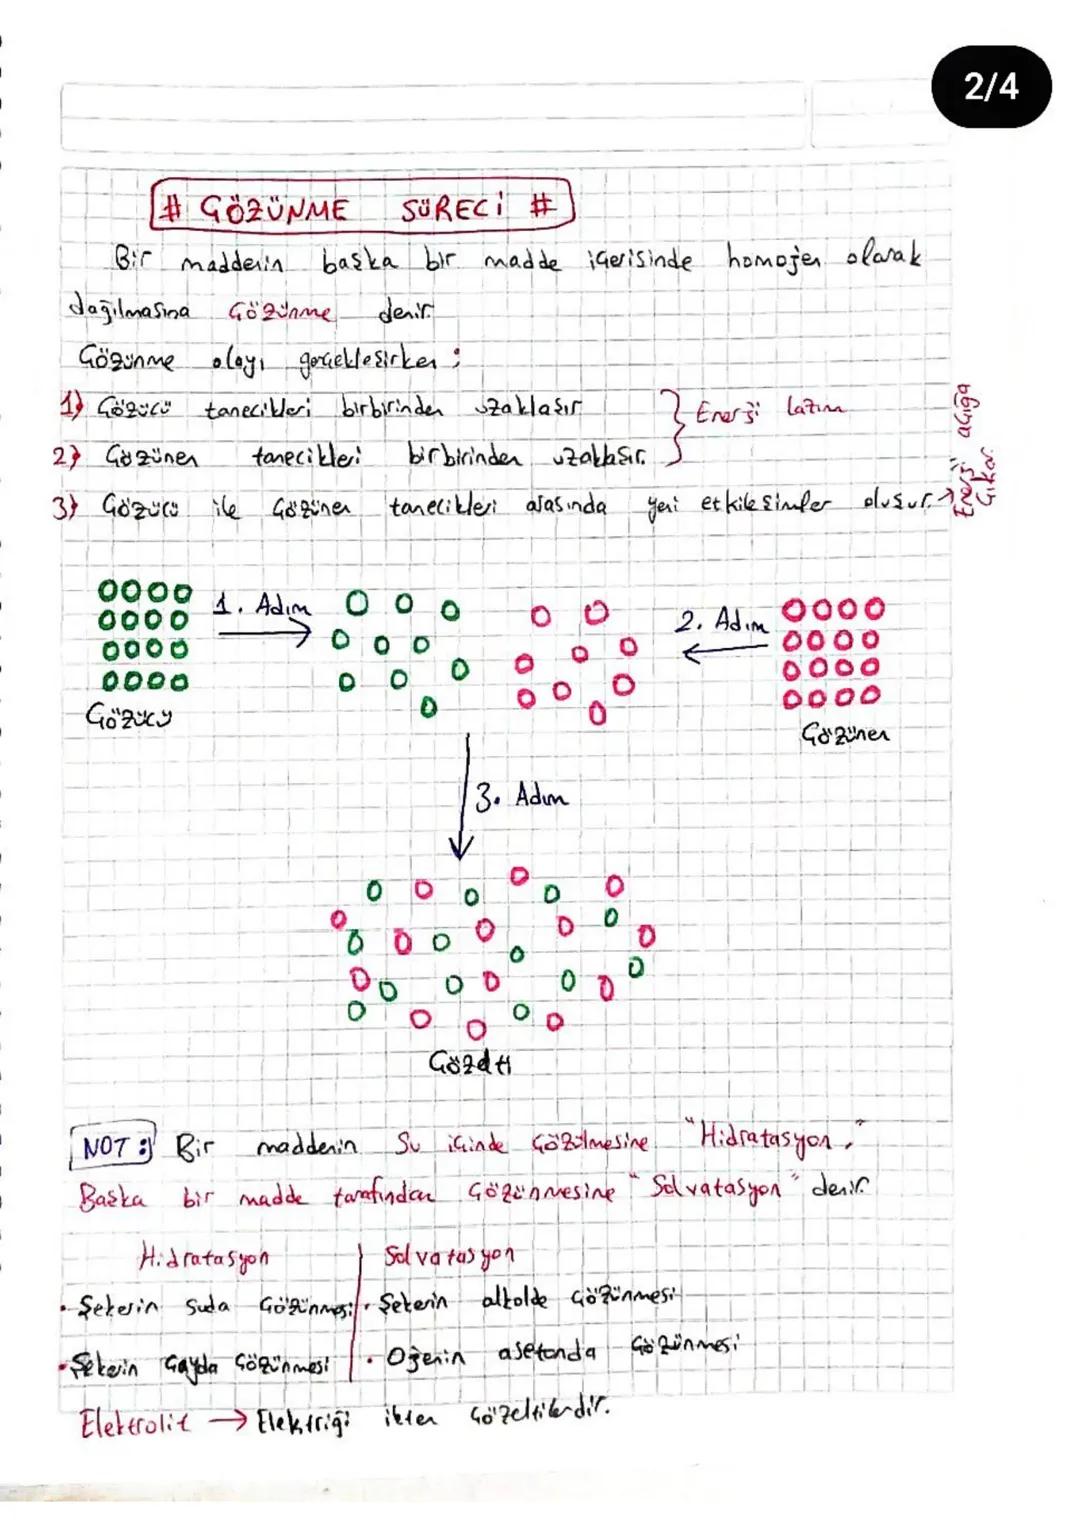 2/4
# ÇÖZÜNME SÜRECİ #
Bir maddenin başka bir madde içerisinde homojen olarak
dağılmasına Çözünme denir.
Çözünme olayı gerçekleşirken ;
1) Çözücü tanecikleri birbirinden uzaklaşır
2) Çözünen tanecikleri birbirinden uzaklaşır.
Enerji lazım
3) Çözücü ile Çözünen tanecikleri arasında yeni etkileşimler oluşur. →
Enerji açığa
Çıkar.
1. Adım
2. Adım
Çözücü
Çözünen
3. Adım
Çözelti
NOT : Bir maddenin Su içinde Çözülmesine "Hidratasyon,"
Başka bir madde tarafından Çözünmesine "Solvatasyon" denir.
Hidratasyon
Solvatasyon
• Şekerin Suda Çözünmesi
• Şekerin alkolde Çözünmesi
• Şekerin Çayda Çözünmesi
• Ojenin asetonda Çözünmesi
Elektrolit → Elektriği ileten Çözeltilerdir.